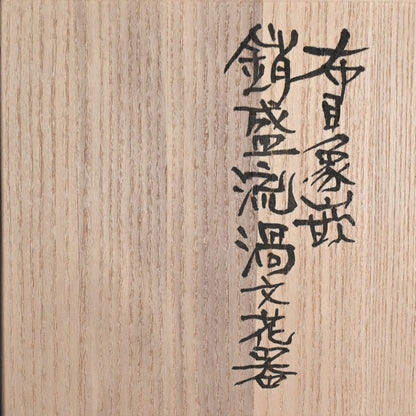 布目象嵌
鎖盛流渦文花器